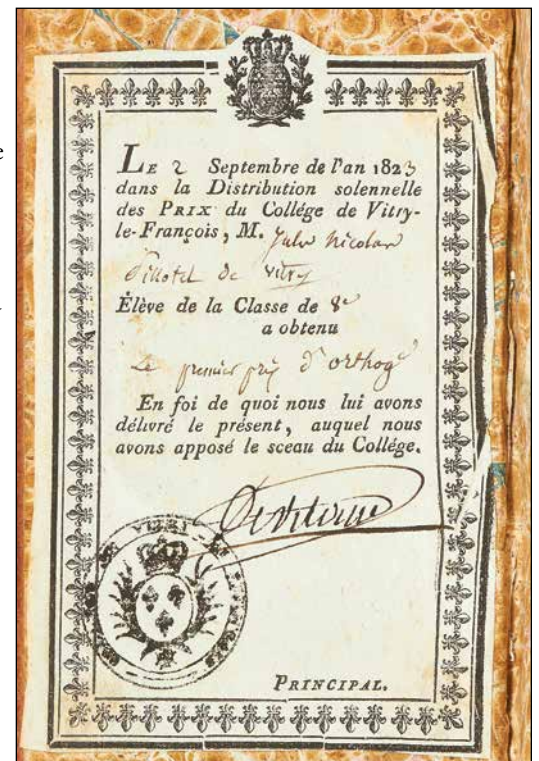 LE 2 Septembre de l'an 1823
dans la Distribution solennelle
des PRIX du Collége de Vitry-
le-François, M. Jules Nicolas
de Vitry
Élève de la Classe de 8e
a obtenu
Le premier prix d'orthoge
En foi de quoi nous lui avons
délivré le présent, auquel nous
avons apposé le sceau du Collége.
VITRY-
PRINCIPAL.